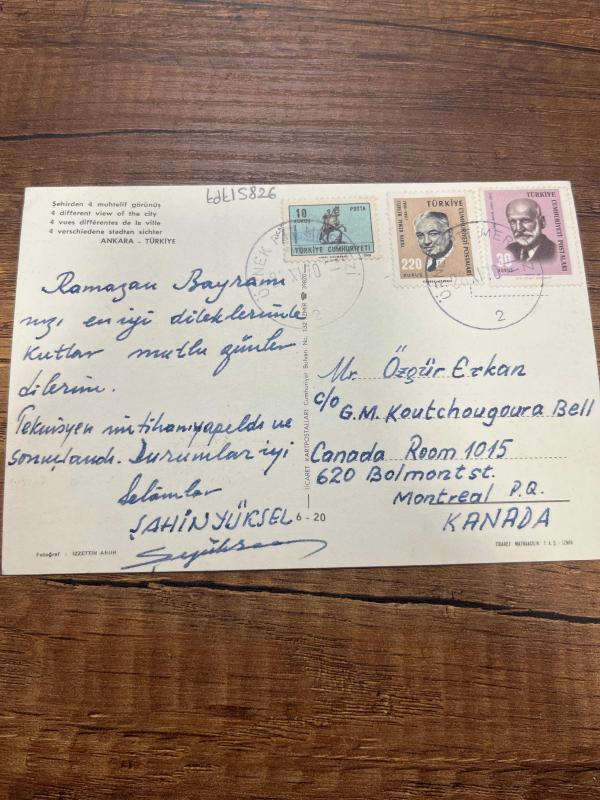 Şehirden 4 muhtelif görünüş
4 different view of the city
4 vues différentes de la ville
4 verschiedene stadtan sichter
ANKARA - TÜRKİYE
tdt15826
10
KURUŞ
POSTA
TÜRKİYE CUMHURİYETİ
TÜRKİYE
CUMHURİYETİ POSTALARI
YAHYA KEMAL BEYATLI
220
KURUŞ
TÜRKİYE
CUMHURİYETİ POSTALARI
30
KURUŞ
2
2
Ramazan Bayramı
nızı en iyi dileklerimle
kutlar mutlu günler
dilerim.
Teknisyen imtihanı yapıldı ve
sonuçlandı. Durumlar iyi
Selâmlar
ŞAHİN YÜKSEL
Mr. Özgür Erkan
c/o
G.M. Koutchougoura Bell
Canada Room 1015
620 Bolmont st.
Montreal P.Q.
KANADA
TİCARET KARTPOSTALLARI Cumhuriyet Bulvarı No. 132 İZMİR
6 - 20
Fotoğraf : İZZETTİN ARUN
TİCARET MATBAACILIK T.A.Ş. - İZMİR